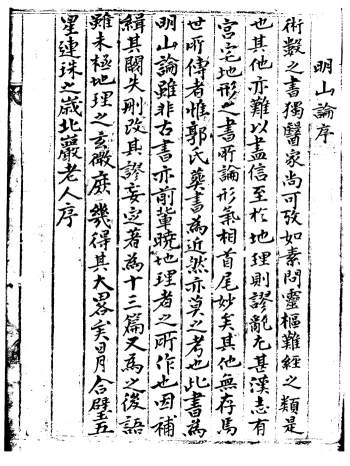 明山論序
術數之書獨醫家尚可攷如素問靈樞難經之類是
也其他亦難以盡信至於地理則謬亂尤甚漢志有
宮宅地形之書所論形氣相首尾妙矣其他無存焉
世所傳者惟郭氏葬書為近然亦莫之考也此書為
明山論雖非古書亦前輩曉地理者之所作也因補
緝其闕失刪改其謬妄定著為十三篇又為之後語
雖未極地理之玄微庶幾得其大畧矣日月合璧五
星連珠之歲北巖老人序